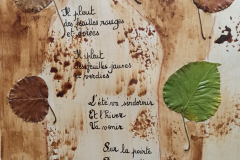 Il pleut
des feuilles rouges
et dorées
Il pleut
des feuilles jaunes
et verdies
L'été va s'endormir
Et l'hiver
Va venir
Sur la pointe